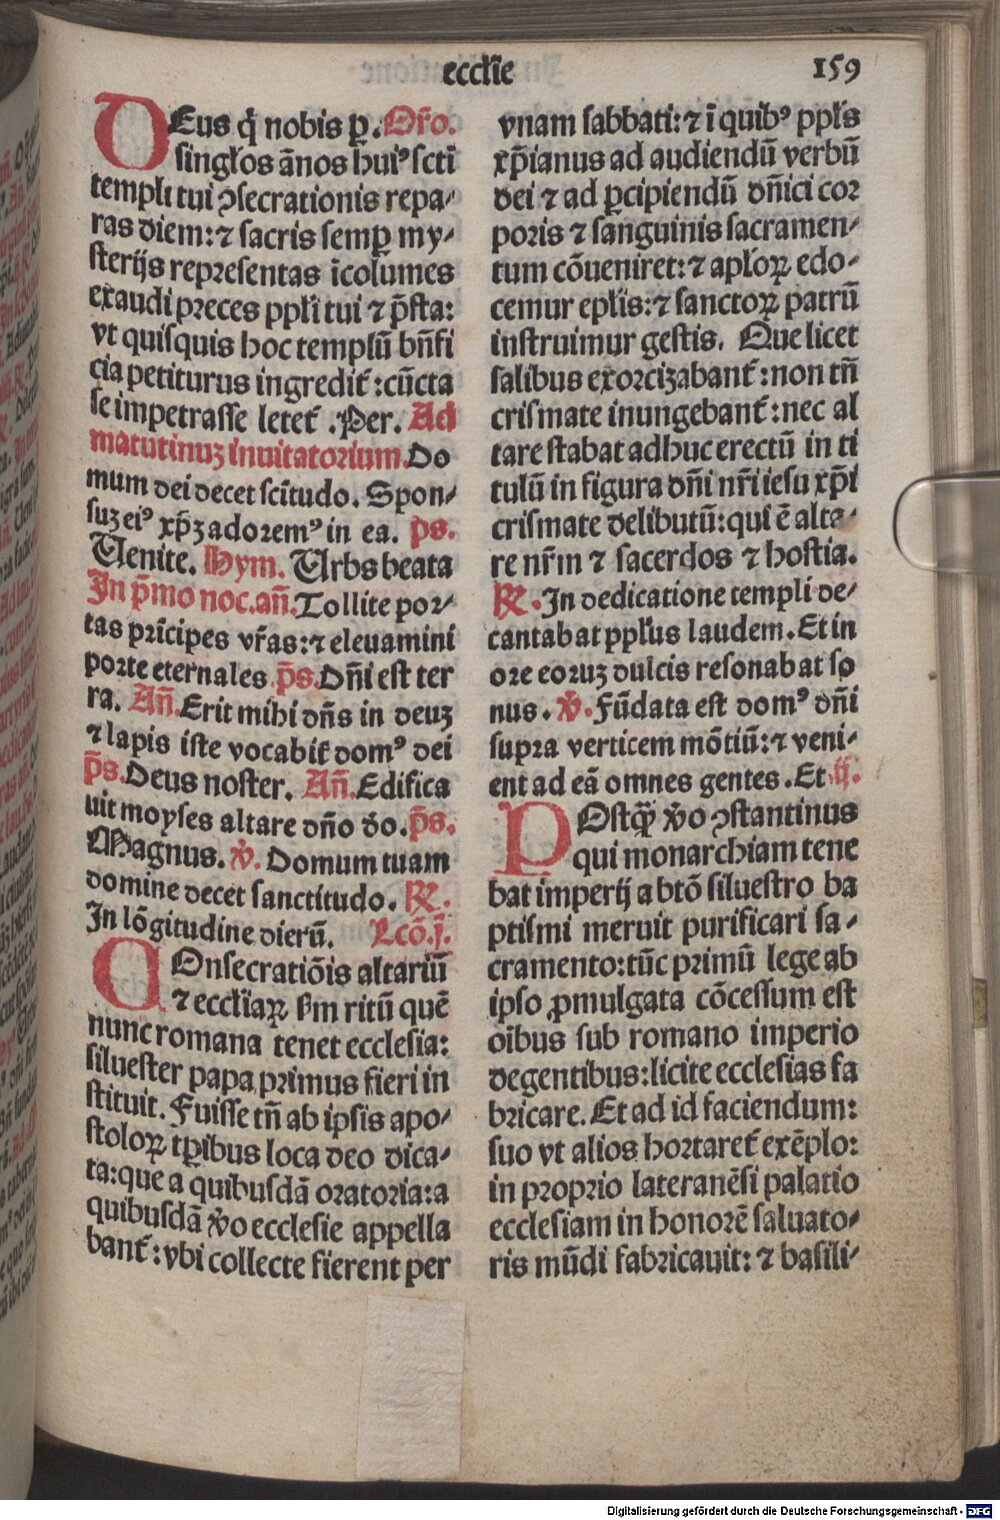 eccl̄ie
159
DEus q̄ nobis ꝑ. Or̄o.
singl̓os ān̄os hui⁹ sct̄i
templi tui ↄsecrationis repa⸗
ras diem: ⁊ sacris semꝑ my⸗
sterijs representas īcolumes
exaudi preces ppl̓i tui ⁊ p̄sta:
vt quisquis hoc templū bn̄fi
cia petiturus ingredit᷑: cūcta
se impetrasse letet᷑. Per. Ad
matutinuꝫ inuitatorium. Do
mum dei decet sct̄itudo. Spon⸗
suꝫ ei⁹ xp̄ꝫ adorem⁹ in ea. ps.
Uenite. Hym. Urbs beata
In p̄mo noc. an̄. Tollite por⸗
tas prīcipes vr̄as: ⁊ eleuamini
porte eternales p̄s. Dn̄i est ter
ra. An̄. Erit mihi dn̄s in deuꝫ
⁊ lapis iste vocabit᷑ dom⁹ dei
p̄s. Deus noster. An̄. Edifica
uit moyses altare dn̄o deo. p̄s.
Magnus. ℣. Domum tuam
domine decet sanctitudo. ℞.
In lōgitudine dierū. Lcō. j.
COnsecratiōis altariū
⁊ eccl̄iaꝝ ẜm ritū quē
nunc romana tenet ecclesia:
siluester papa primus fieri in
stituit. Fuisse tn̄ ab ipsis apo⸗
stoloꝝ tp̄ibus loca deo dica⸗
ta: que a quibusdā oratoria: a
quibusdā v̓o ecclesie appella
bant᷑: vbi collecte fierent per
vnam sabbati: ⁊ ī quib⁹ ppl̓s
xp̄ianus ad audiendū verbū
dei ⁊ ad ꝑcipiendū dn̄ici cor
poris ⁊ sanguinis sacramen⸗
tum cōueniret: ⁊ apl̓oꝝ edo⸗
cemur epl̓is: ⁊ sanctoꝝ patrū
instruimur gestis. Que licet
salibus exorcizabant᷑: non tn̄
crismate inungebant᷑: nec al
tare stabat adhuc erectū in ti
tulū in figura dn̄i nr̄i iesu xp̄i
crismate delibutū: qui ē alta⸗
re nr̄m ⁊ sacerdos ⁊ hostia.
℞. In dedicatione templi de⸗
cantabat ppl̓us laudem. Et in
ore eoruꝫ dulcis resonabat so
nus. ℣. Fūdata est dom⁹ dn̄i
supra verticem mōtiū: ⁊ veni⸗
ent ad eā omnes gentes. Et ij.
POstꝙ̄ v̓o ↄstantinus
qui monarchiam tene
bat imperij a btō siluestro ba
ptismi meruit purificari sa⸗
cramento: tūc primū lege ab
ipso ꝓmulgata cōcessum est
oībus sub romano imperio
degentibus: licite ecclesias fa
bricare. Et ad id faciendum:
suo vt alios hortaret᷑ exēplo:
in proprio lateranēsi palatio
ecclesiam in honorē saluato⸗
ris mūdi fabricauit: ⁊ basili⸗
Digitalisierung gefördert durch die Deutsche Forschungsgemeinschaft - DFG